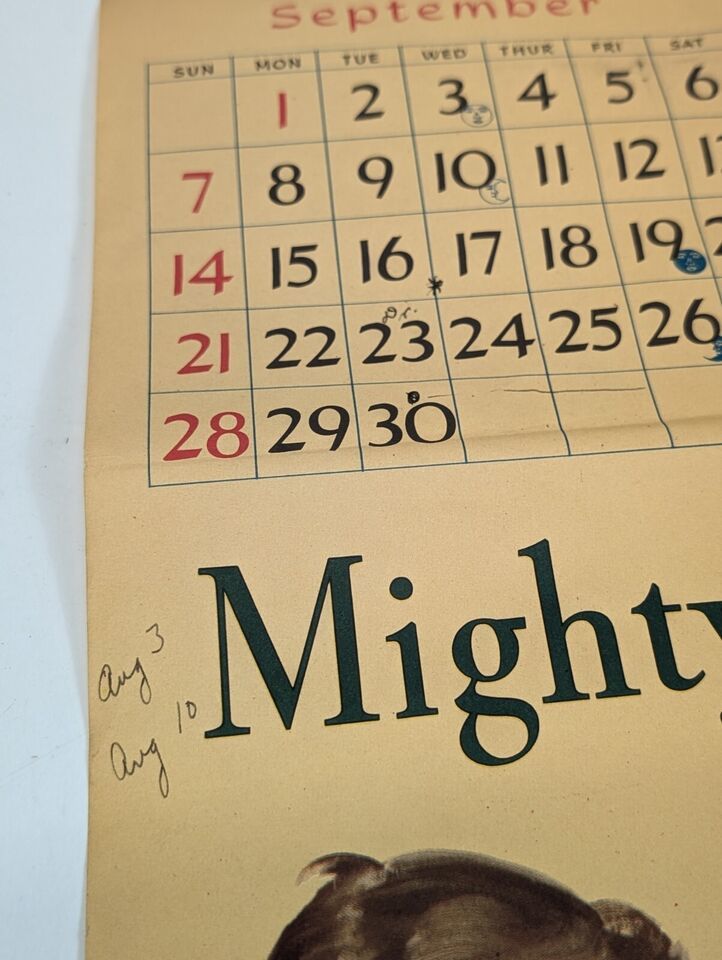 September
SUN MON TUE WED THUR FRI SAT
1 2 3 4 5 6
7 8 9 10 11 12
14 15 16 17 18 19
21 22 23 24 25 26
28 29 30
Mighty
Aug 3
Aug 10